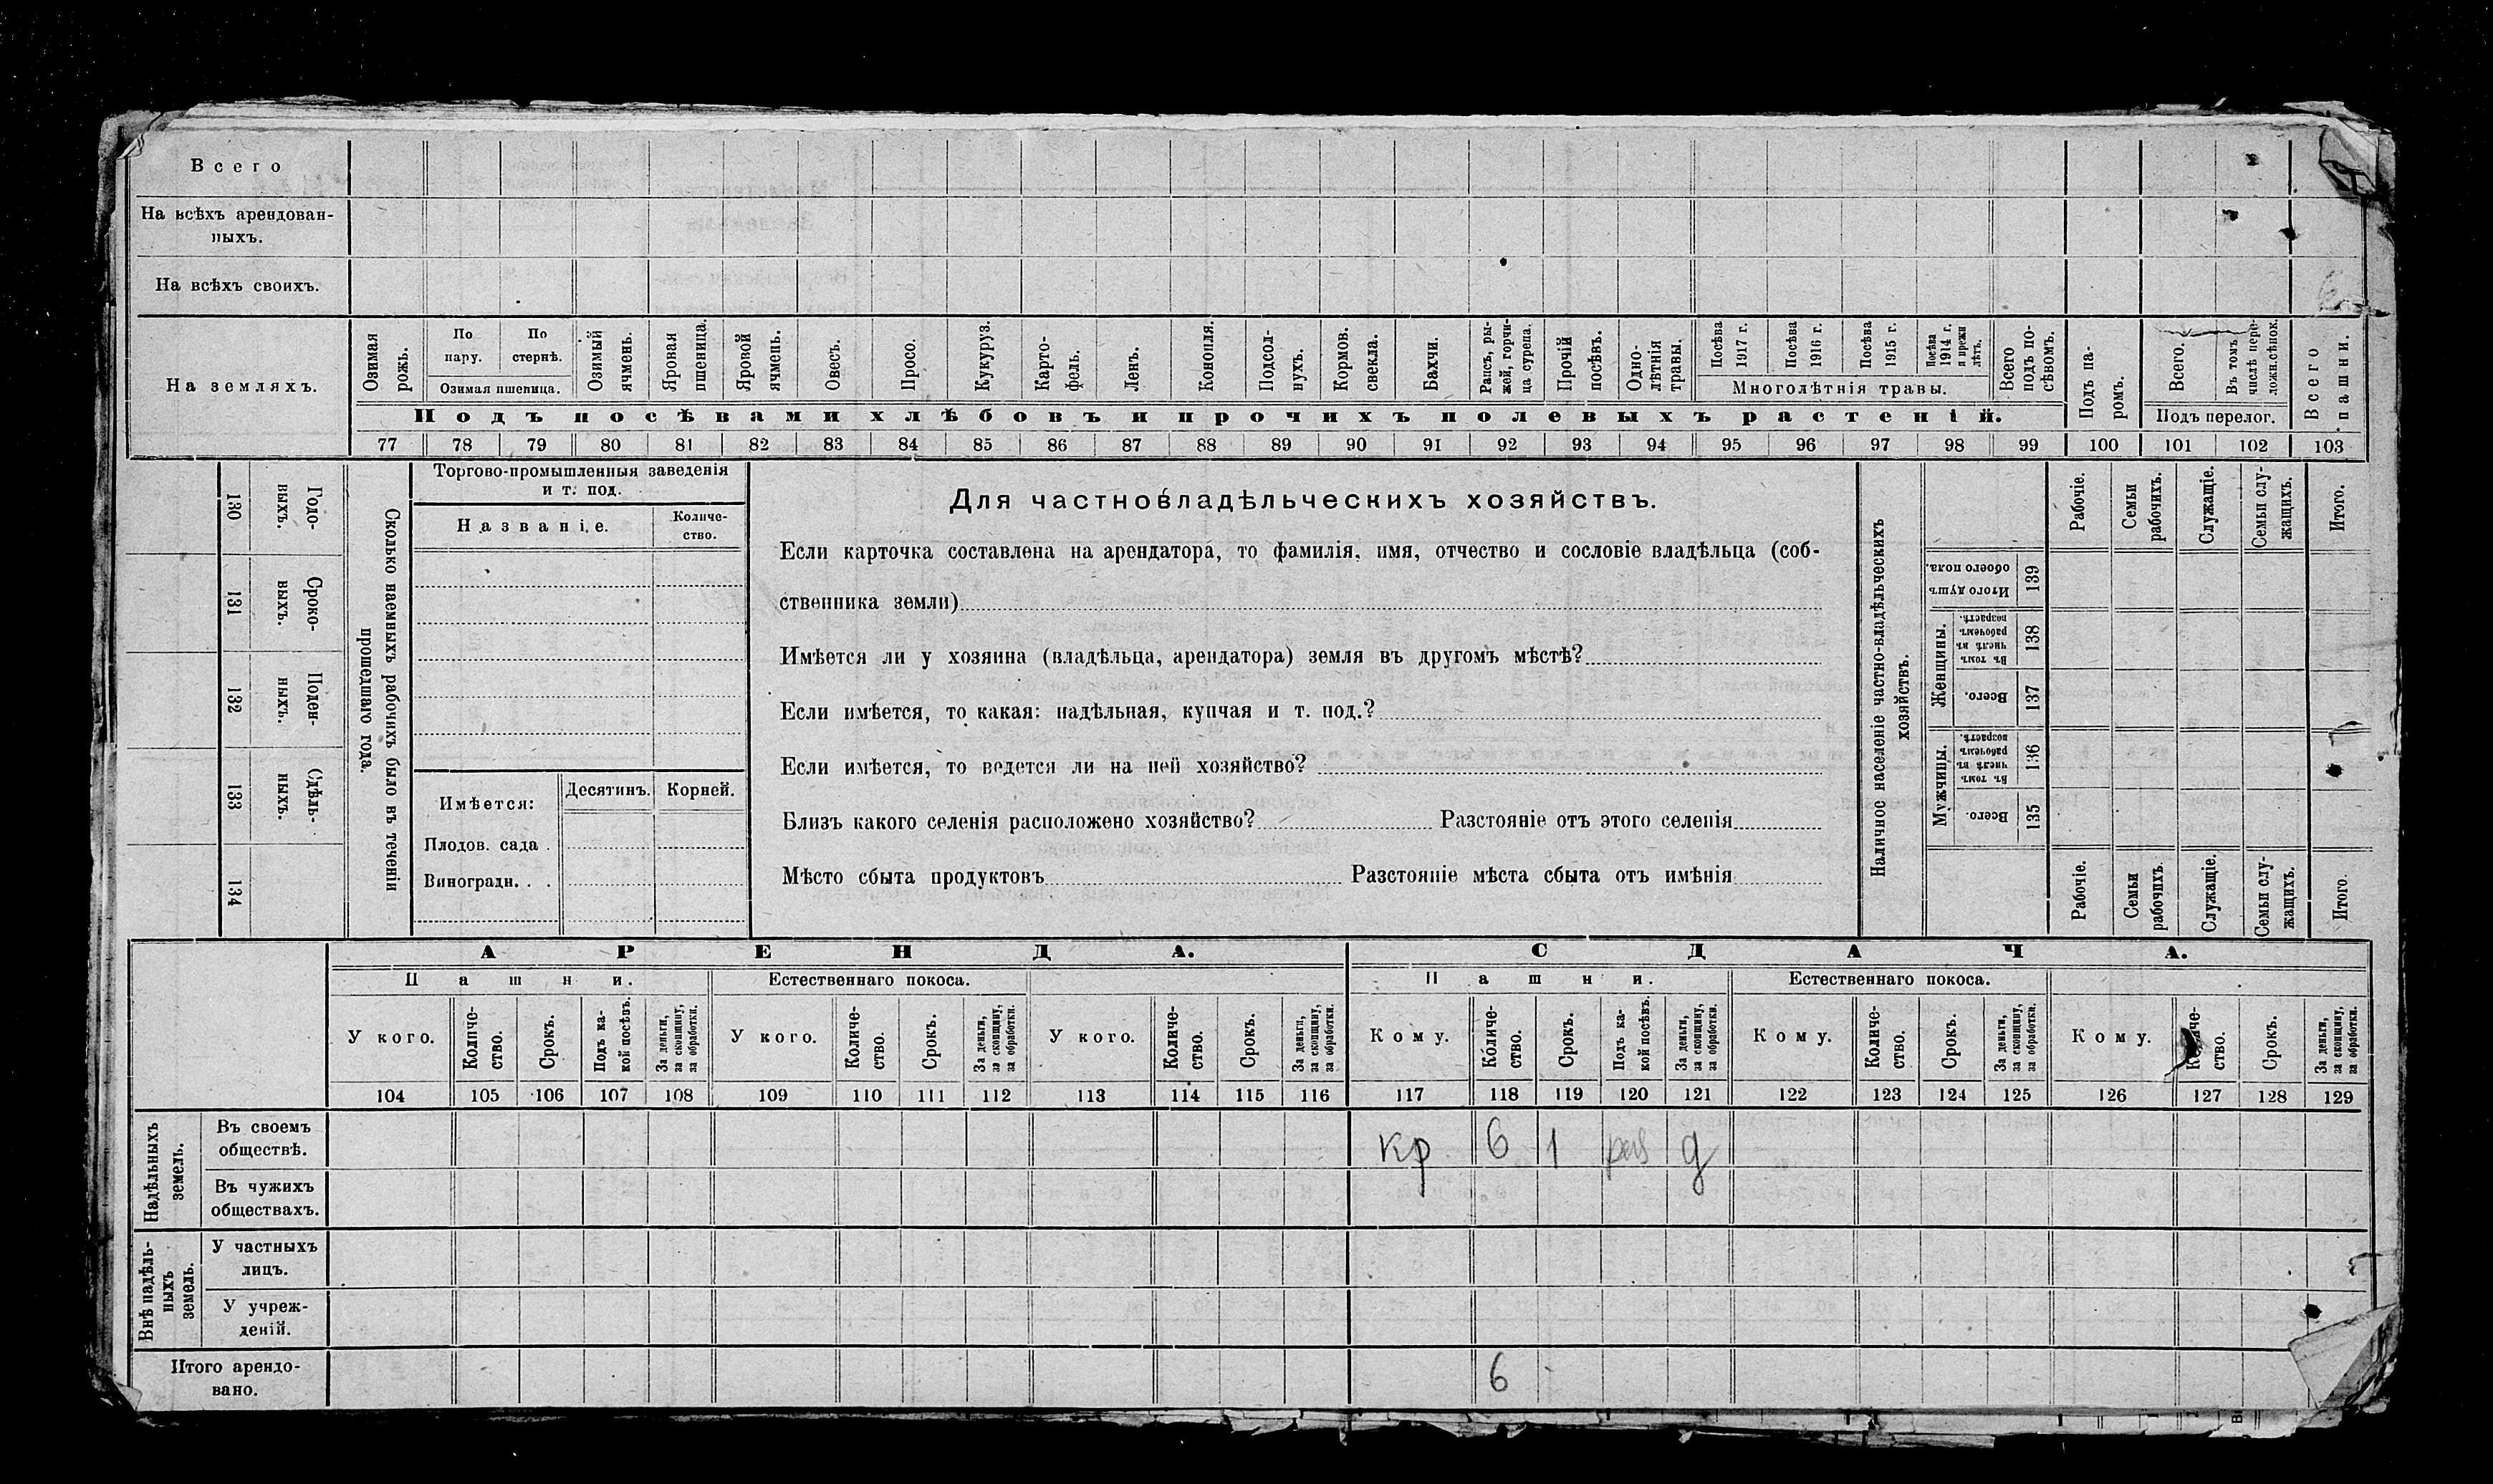 Всего
На всѣхъ арендован-
ныхъ.
На всѣхъ своихъ.
На земляхъ.
Озимая рожь.
По пару.
По стернѣ.
Озимая пшеница.
Озимый ячмень.
Яровая пшеница.
Яровой ячмень.
Овесъ.
Просо.
Кукуруз.
Карто-
фель.
Ленъ.
Конопля.
Подсол-
нухъ.
Кормов. свекла.
Бахчи.
Рапсъ, ры-
жей, горчи-
ца сурепа.
Прочій посѣвъ.
Одно-
лѣтнія травы.
Посѣва 1917 г.
Посѣва 1916 г.
Посѣва 1915 г.
Посѣва 1914 г. и прежн лѣтъ.
Многолѣтнія травы.
Всего подъ по-
сѣвомъ.
Подъ посѣвами хлѣбовъ и прочихъ полевыхъ растеній.
Подъ па-
ромъ.
Всего.
Въ томъ числѣ пере-
ложн.сѣнок.
Подъ перелог.
Всего пашни.
77 78 79 80 81 82 83 84 85 86 87 88 89 90 91 92 93 94 95 96 97 98 99 100 101 102 103
130 Годо-
выхъ.
131 Сроко-
выхъ.
132 Поден-
ныхъ.
133 Сдѣль-
ныхъ.
134
Сколько наемныхъ рабочихъ было въ теченіи
прошедшаго года.
Торгово-промышленныя заведенія
и т. под.
Названіе.
Количе-
ство.
Имѣется:
Десятинъ.
Корней.
Плодов. сада .
Виноградн. . .
Для частновладѣльческихъ хозяйствъ.
Если карточка составлена на арендатора, то фамилія, имя, отчество и сословіе владѣльца (соб-
ственника земли)
Имѣется ли у хозяина (владѣльца, арендатора) земля въ другомъ мѣстѣ?
Если имѣется, то какая: надѣльная, купчая и т. под.?
Если имѣется, то ведется ли на ней хозяйство?
Близъ какого селенія расположено хозяйство? Разстояніе отъ этого селенія
Мѣсто сбыта продуктовъ Разстояніе мѣста сбыта отъ имѣнія
Наличное населеніе частно-владѣльческихъ
хозяйствъ.
Итого душъ обоего пола. 139
Женщины.
Въ томъ числѣ въ рабочемъ возрастѣ. 138
Всего. 137
Мужчины.
Въ томъ числѣ въ рабочемъ возрастѣ. 136
Всего. 135
Рабочіе.
Семьи рабочихъ.
Служащіе.
Семьи слу-
жащихъ.
Итого.
Рабочіе.
Семьи рабочихъ.
Служащіе.
Семьи слу-
жащихъ.
Итого.
АРЕНДА.
СДАЧА.
Пашни.
Естественнаго покоса.
Пашни.
Естественнаго покоса.
У кого.
Количе-
ство.
Срокъ.
Подъ ка-
кой посѣвъ.
За деньги, за скопщину, за обработки.
У кого.
Количе-
ство.
Срокъ.
За деньги, за скопщину, за обработки.
У кого.
Количе-
ство.
Срокъ.
За деньги, за скопщину, за обработки.
Кому.
Количе-
ство.
Срокъ.
Подъ ка-
кой посѣвъ.
За деньги, за скопщину, за обработки.
Кому.
Количе-
ство.
Срокъ.
За деньги, за скопщину, за обработки.
Кому.
Количе-
ство.
Срокъ.
За деньги, за скопщину, за обработки.
104 105 106 107 108 109 110 111 112 113 114 115 116 117 118 119 120 121 122 123 124 125 126 127 128 129
Надѣльныхъ земель.
Въ своемъ
обществѣ.
кр 6 1 д
Въ чужихъ
обществахъ.
Внѣ надѣль-
ныхъ земель.
У частныхъ
лицъ.
У учреж-
деній.
Итого арендо-
вано.
6